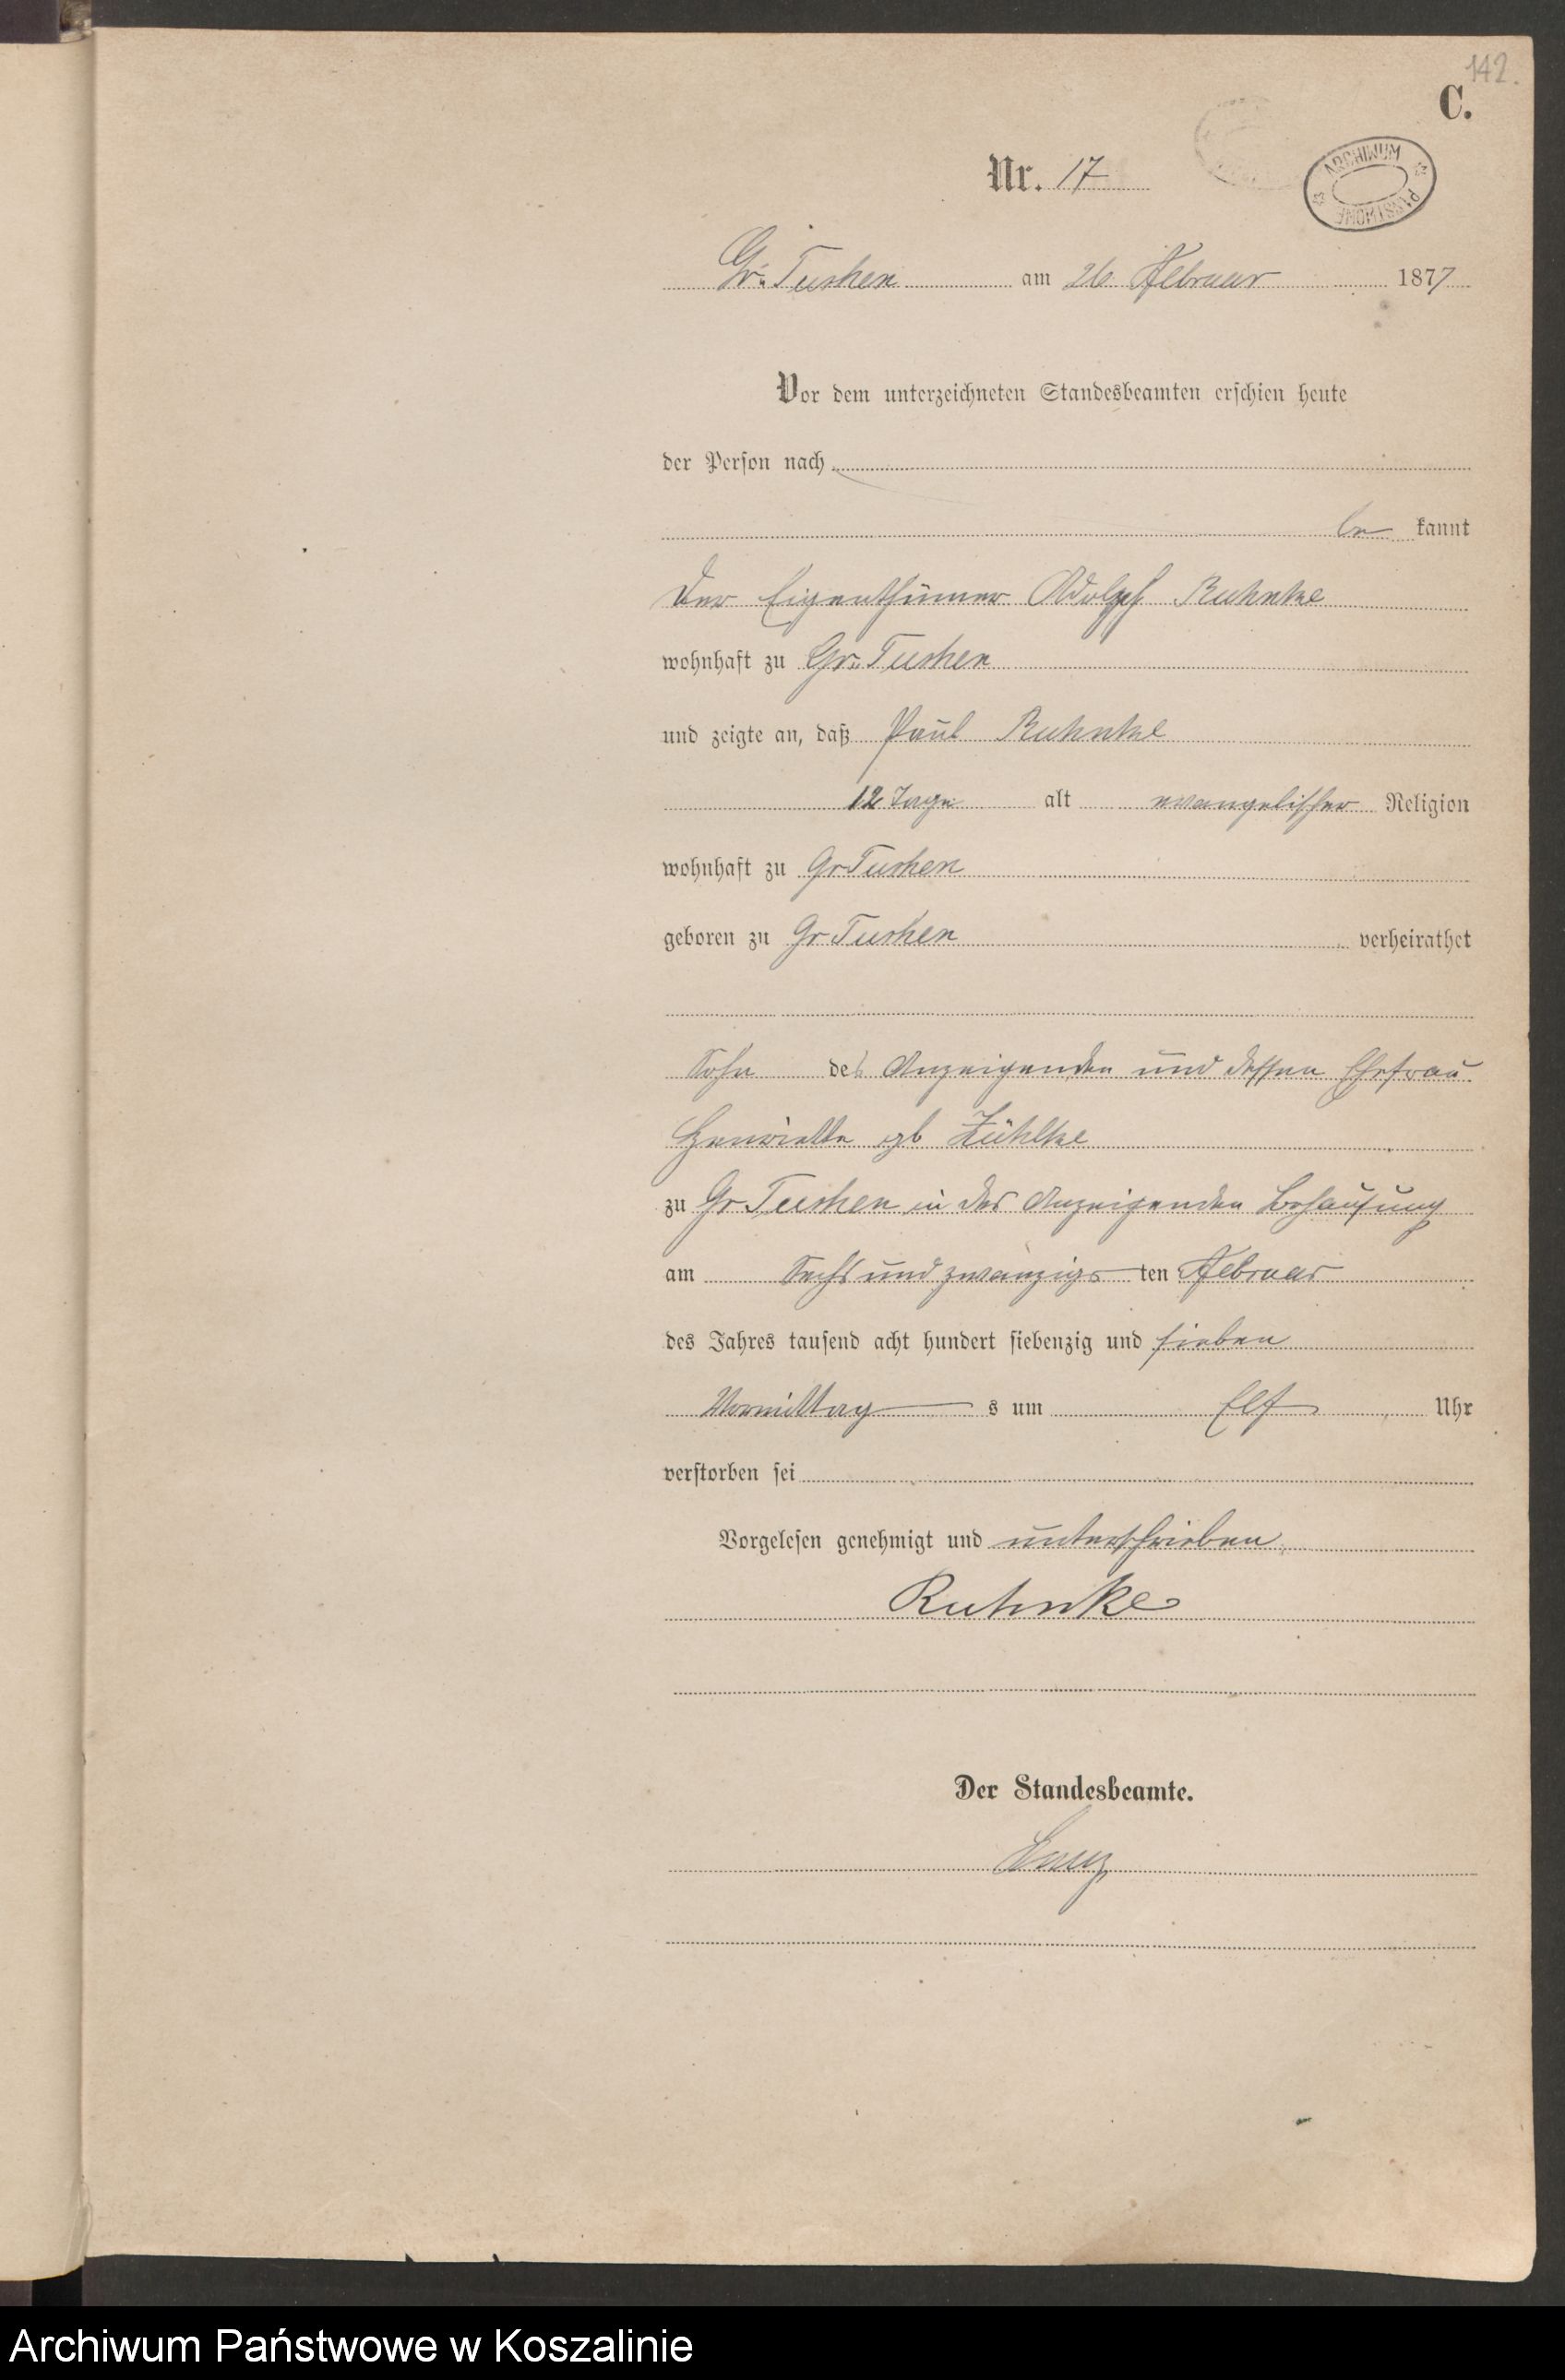 142.
C.
ARCHIWUM PAŃSTWOWE
Nr. 17
Gr. Tuchen am 26 Februar 1877
Vor dem unterzeichneten Standesbeamten erschien heute
der Person nach
be kannt
der Eigenthümer Adolph Ruhnke
wohnhaft zu Gr. Tuchen
und zeigte an, daß Paul Ruhnke
12 Tage alt evangelischer Religion
wohnhaft zu Gr Tuchen
geboren zu Gr Tuchen verheirathet
Sohn des Anzeigenden und dessen Ehefrau
Henriette gb Zühlke
zu Gr. Tuchen in des Anzeigenden Behausung
am Sechs und zwanzigs ten Februar
des Jahres tausend acht hundert siebenzig und sieben
Vormittag s um Elf Uhr
verstorben sei
Vorgelesen genehmigt und unterschrieben
Ruhnke
Der Standesbeamte.
Archiwum Państwowe w Koszalinie